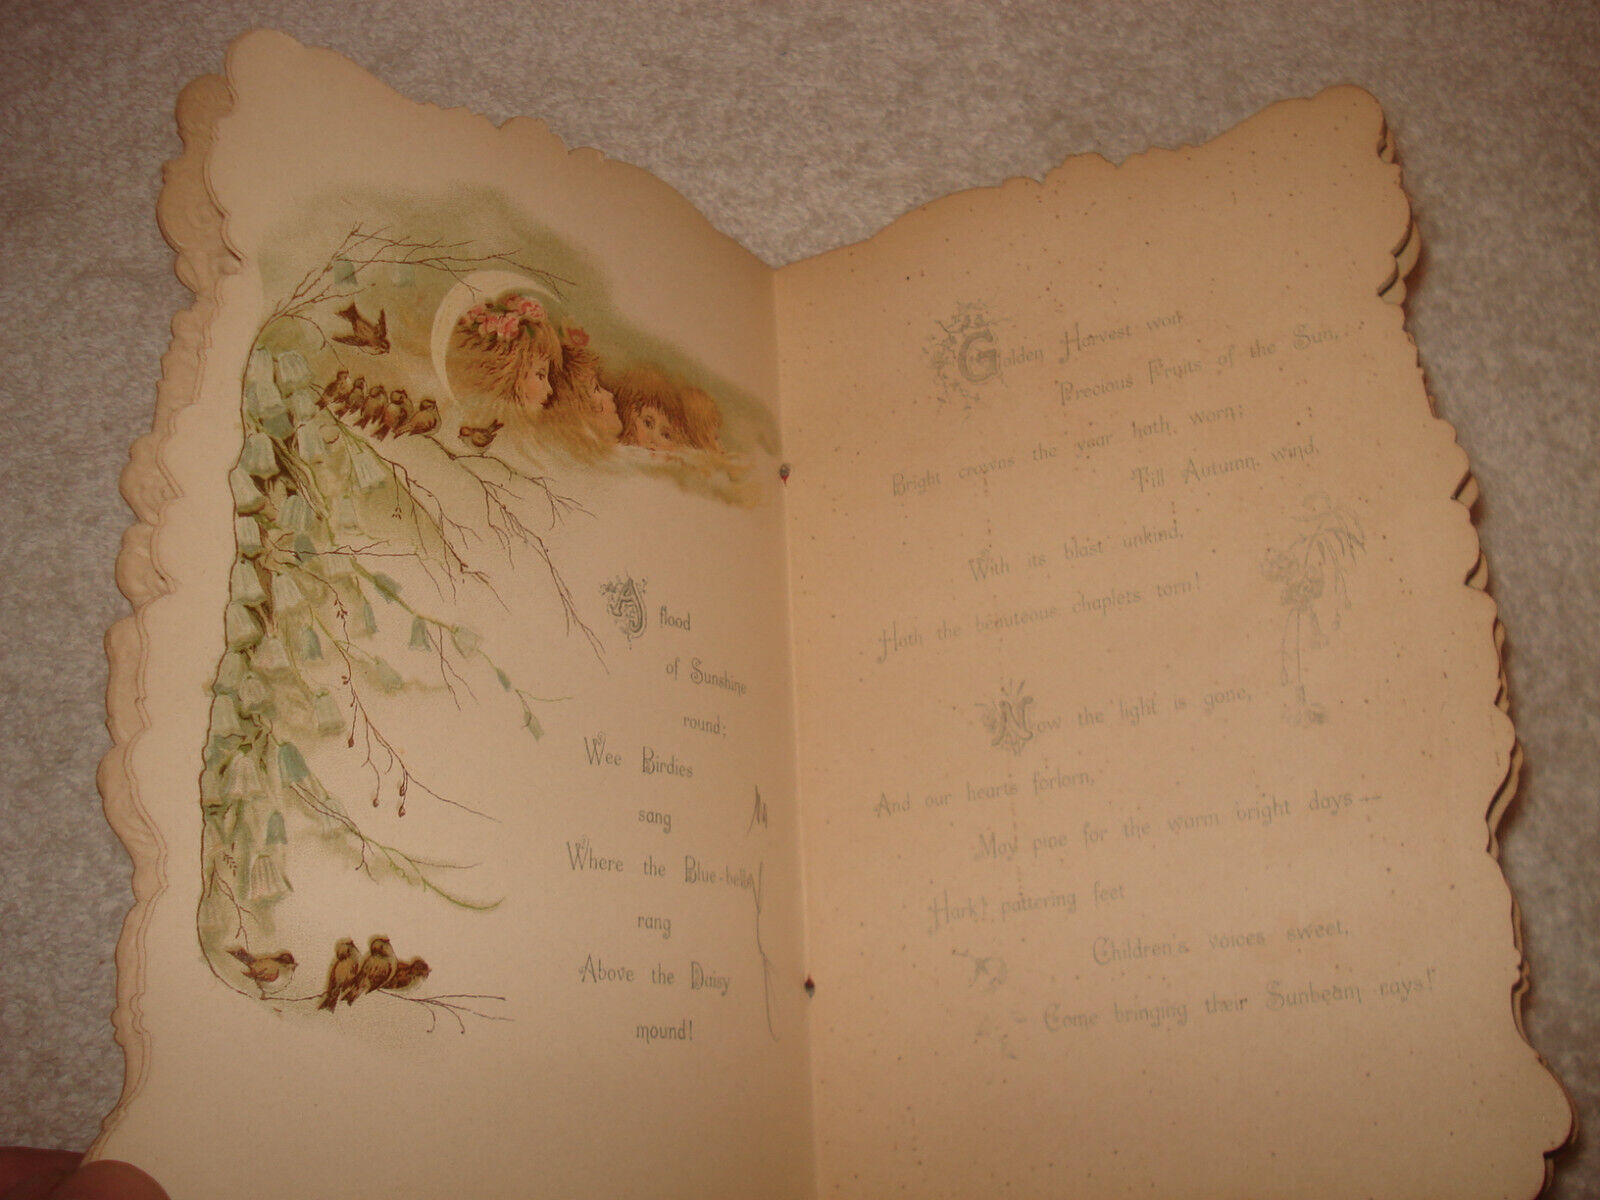 A flood
of Sunshine
round;
Wee Birdies
sang
Where the Blue-bells
rang
Above the Daisy
mound!
Golden Harvest won,
Precious Fruits of the Sun,
Bright crowns the year hath worn;
Till Autumn wind,
With its blast unkind,
Hath the beauteous chaplets torn!
Now the light is gone,
And our hearts forlorn,
May pine for the warm bright days—
Hark! pattering feet
Children's voices sweet,
Come bringing their Sunbeam rays!